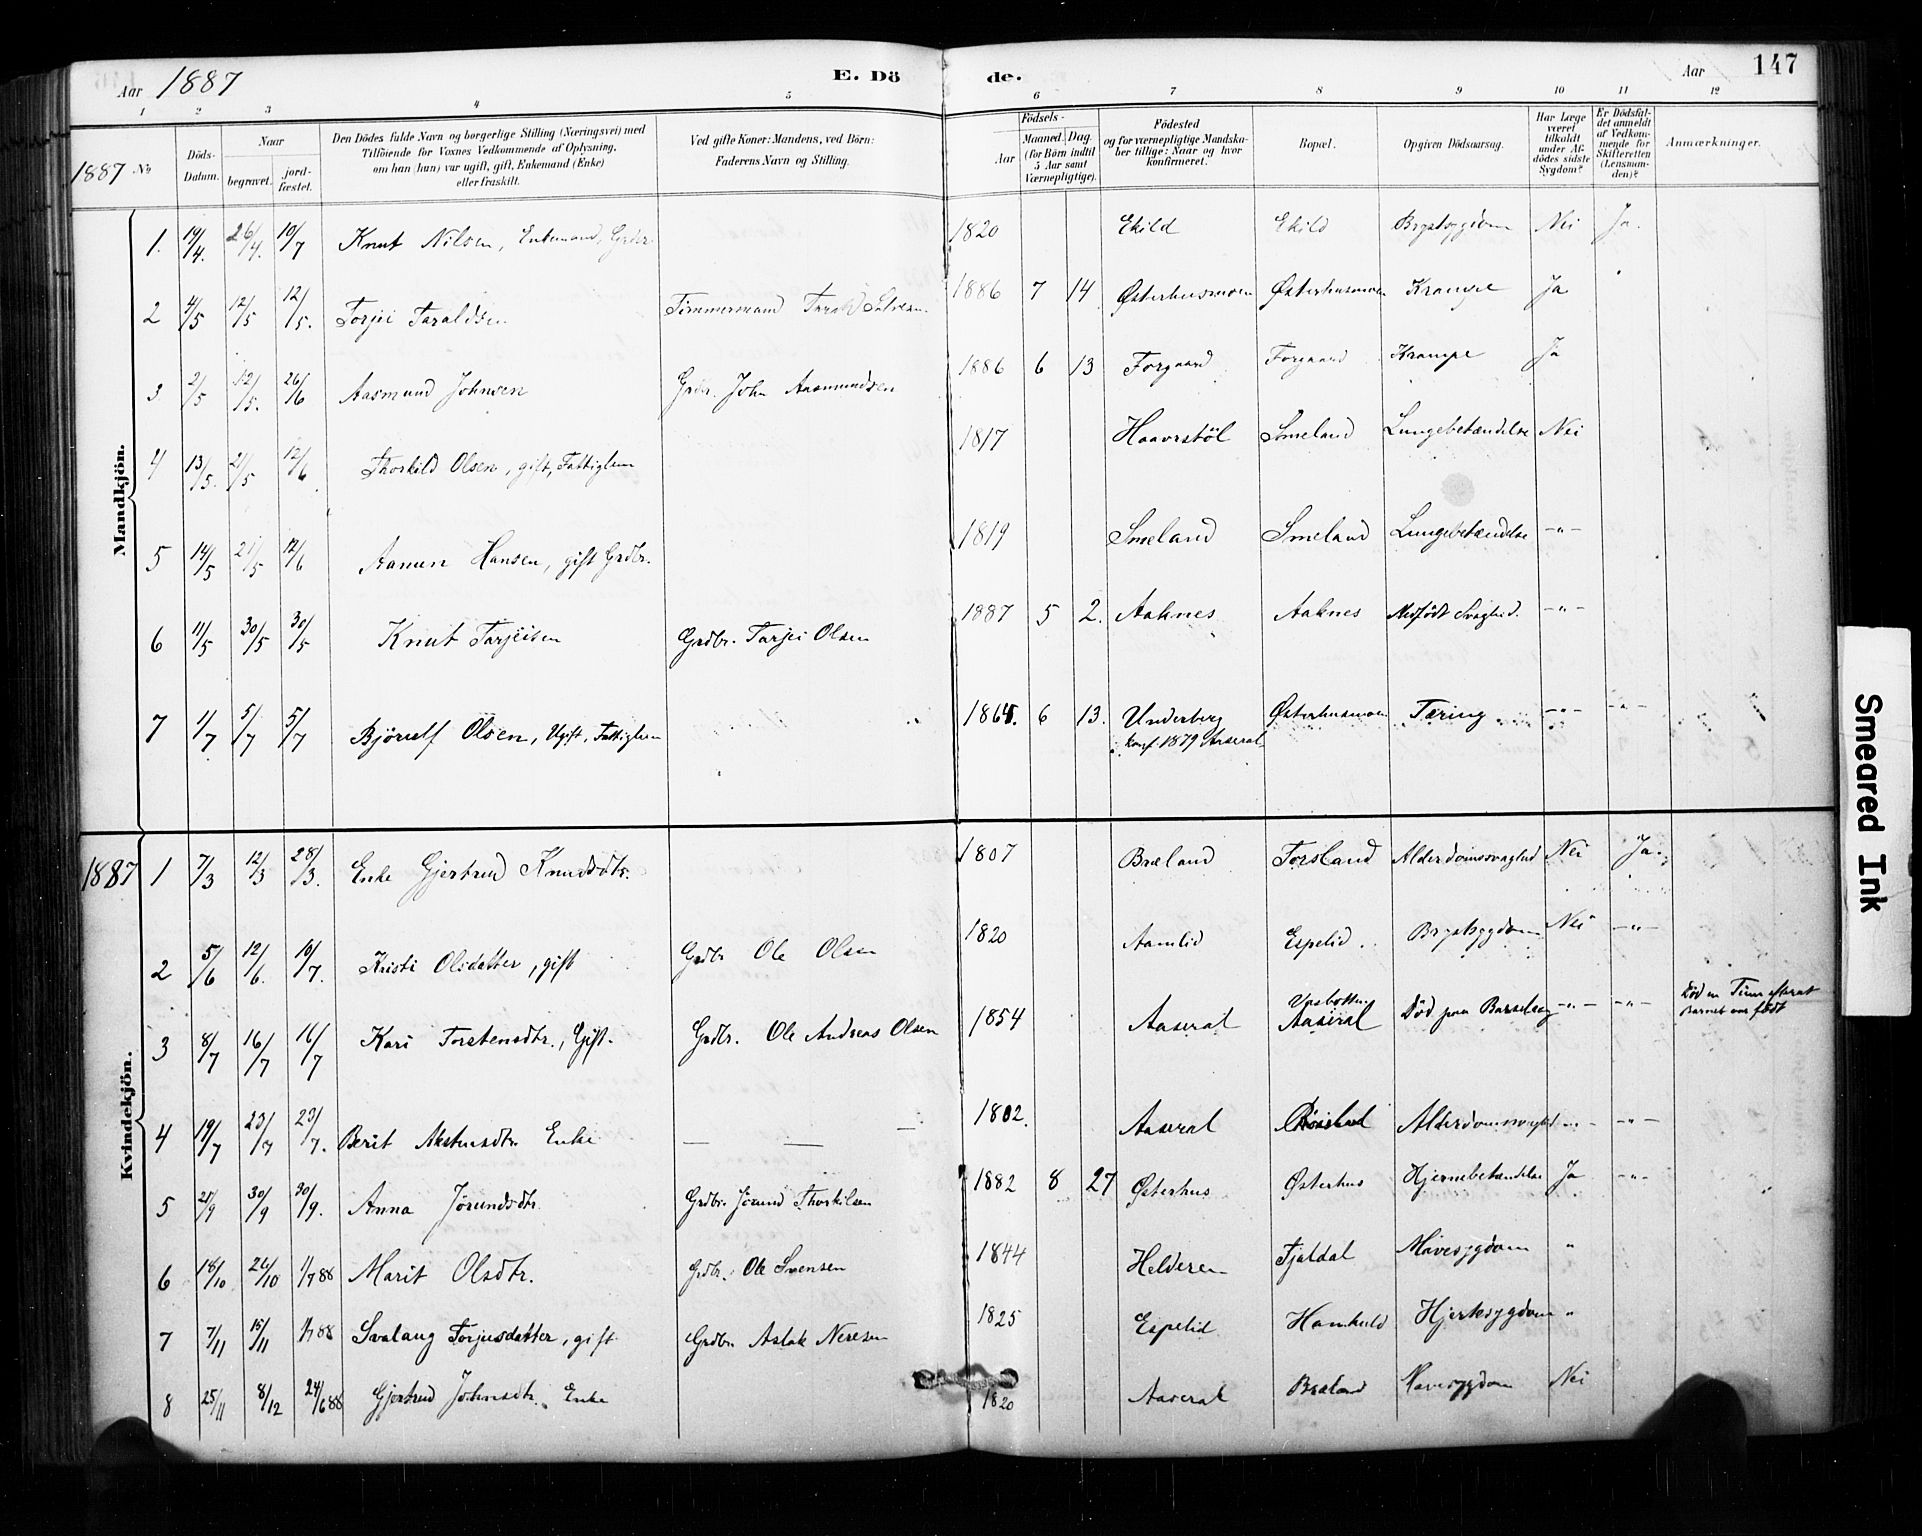 Aar 1887 E. Dö de. Aar 147
1 2 3 4 5 6 7 8 9 10 11 12
1887 No Döds-Datum. Naar begravet. jord-fæstet. Den Dödes fulde Navn og borgerlige Stilling (Næringsvei) med Tilföiende for Voxnes Vedkommende af Oplysning, om han (hun) var ugift, gift, Enkemand (Enke) eller fraskilt. Ved gifte Koner: Mandens, ved Börn: Faderens Navn og Stilling. Födsels- Aar Maaned. Dag. (for Börn indtil 5 Aar samt Værnepligtige). Födested og for værnepligtige Mandska-ber tillige: Naar og hvor konfirmeret. Bopæl. Opgiven Dödsaarsag. Har Læge været tilkaldt under Af-dödes sidste Sygdom? Er Dödsfal-det anmeldt af Vedkom-mende for Skifteretten (Lensman-den)? Anmærkninger.
Mandkjön.
1. 19/4. 26/4. 10/7 Knut Nilsen, Enkemand, Grdbr. 1820 Ekild Ekild Brystsygdom Nei Ja.
2 4/5 12/5 12/5. Torjei Taraldsen Tømmermand 1886 7 14 Østerhusmoen Østerhusmoen Krampe Ja
3 2/5 12/5. 26/6 Aasmund Johnsen Grdbr. John Aasmundsen 1886 6 13 Forgaard Forgaard Krampe Ja
4 13/5. 21/5 12/6 Thorkild Olsen, gift, Fattiglem 1817 Haavrstöl Smeland Lungebetændelse Nei
5 14/5 21/5 12/6 Aanen Hansen, gift Grdbr. 1819 Smeland Smeland Lungebetændelse -"-
6 11/5 30/5 30/5 Knut Tarjeisen Grdbr. Tarjei Olsen 1887 5 2. Aaknes Aaknes Medfödt Svaghed. -"-
7 1/7 5/7 5/7 Björulf Olsen, Ugift, Fattiglem 1864. 6 13. Underberg Østerhusmoen Tæring -"- -"-
konf. 1879 Aaseral
Kvindekjön.
1887 1 7/3 12/3 28/3. Enke Gjertrud Knudsdtr. 1807 Bræland Forsland Alderdomssvaghed Nei Ja.
2 5/6 12/6. 10/7. Kristi Olsdatter, gift Grdbr Ole Olsen 1820 Aamlid Espelid. Brystsygdom Nei -"-
3 8/7 16/7 16/7 Kari Torstensdtr., Gift. Grdbr. Ole Andreas Olsen 1854 Aaseral Aaseral Död paa Barselseng -"- -"- Död en Time efterat
Barnet var födt
4 19/7 23/7 23/7. Berit Enke — — — 1802. Aaseral Alderdomssvaghed -"- -"-
5 21/9 30/9 30/9. Anna Jörundsdtr. Grdbr. Jörund Thorkilsen 1882 8 27 Østerhus Østerhus Hjernebetændelse Ja -"-
6 18/10 26/10 1/7 88 Marit Olsdtr. Grdbr. Ole Svensen 1844 Helderen Fjaldal Mavesygdom "
7 7/11 15/11 1/7 88 Svalaug Torjusdatter, gift Grdbr. Aslak Neresen 1825 Espelid Hamkold Hjertesygdom "
8 25/11 8/12 24/6 88 Gjertrud Johnsdtr. Enke 1820 Aaseral Bræland Mavesygdom Nei
Smeared Ink